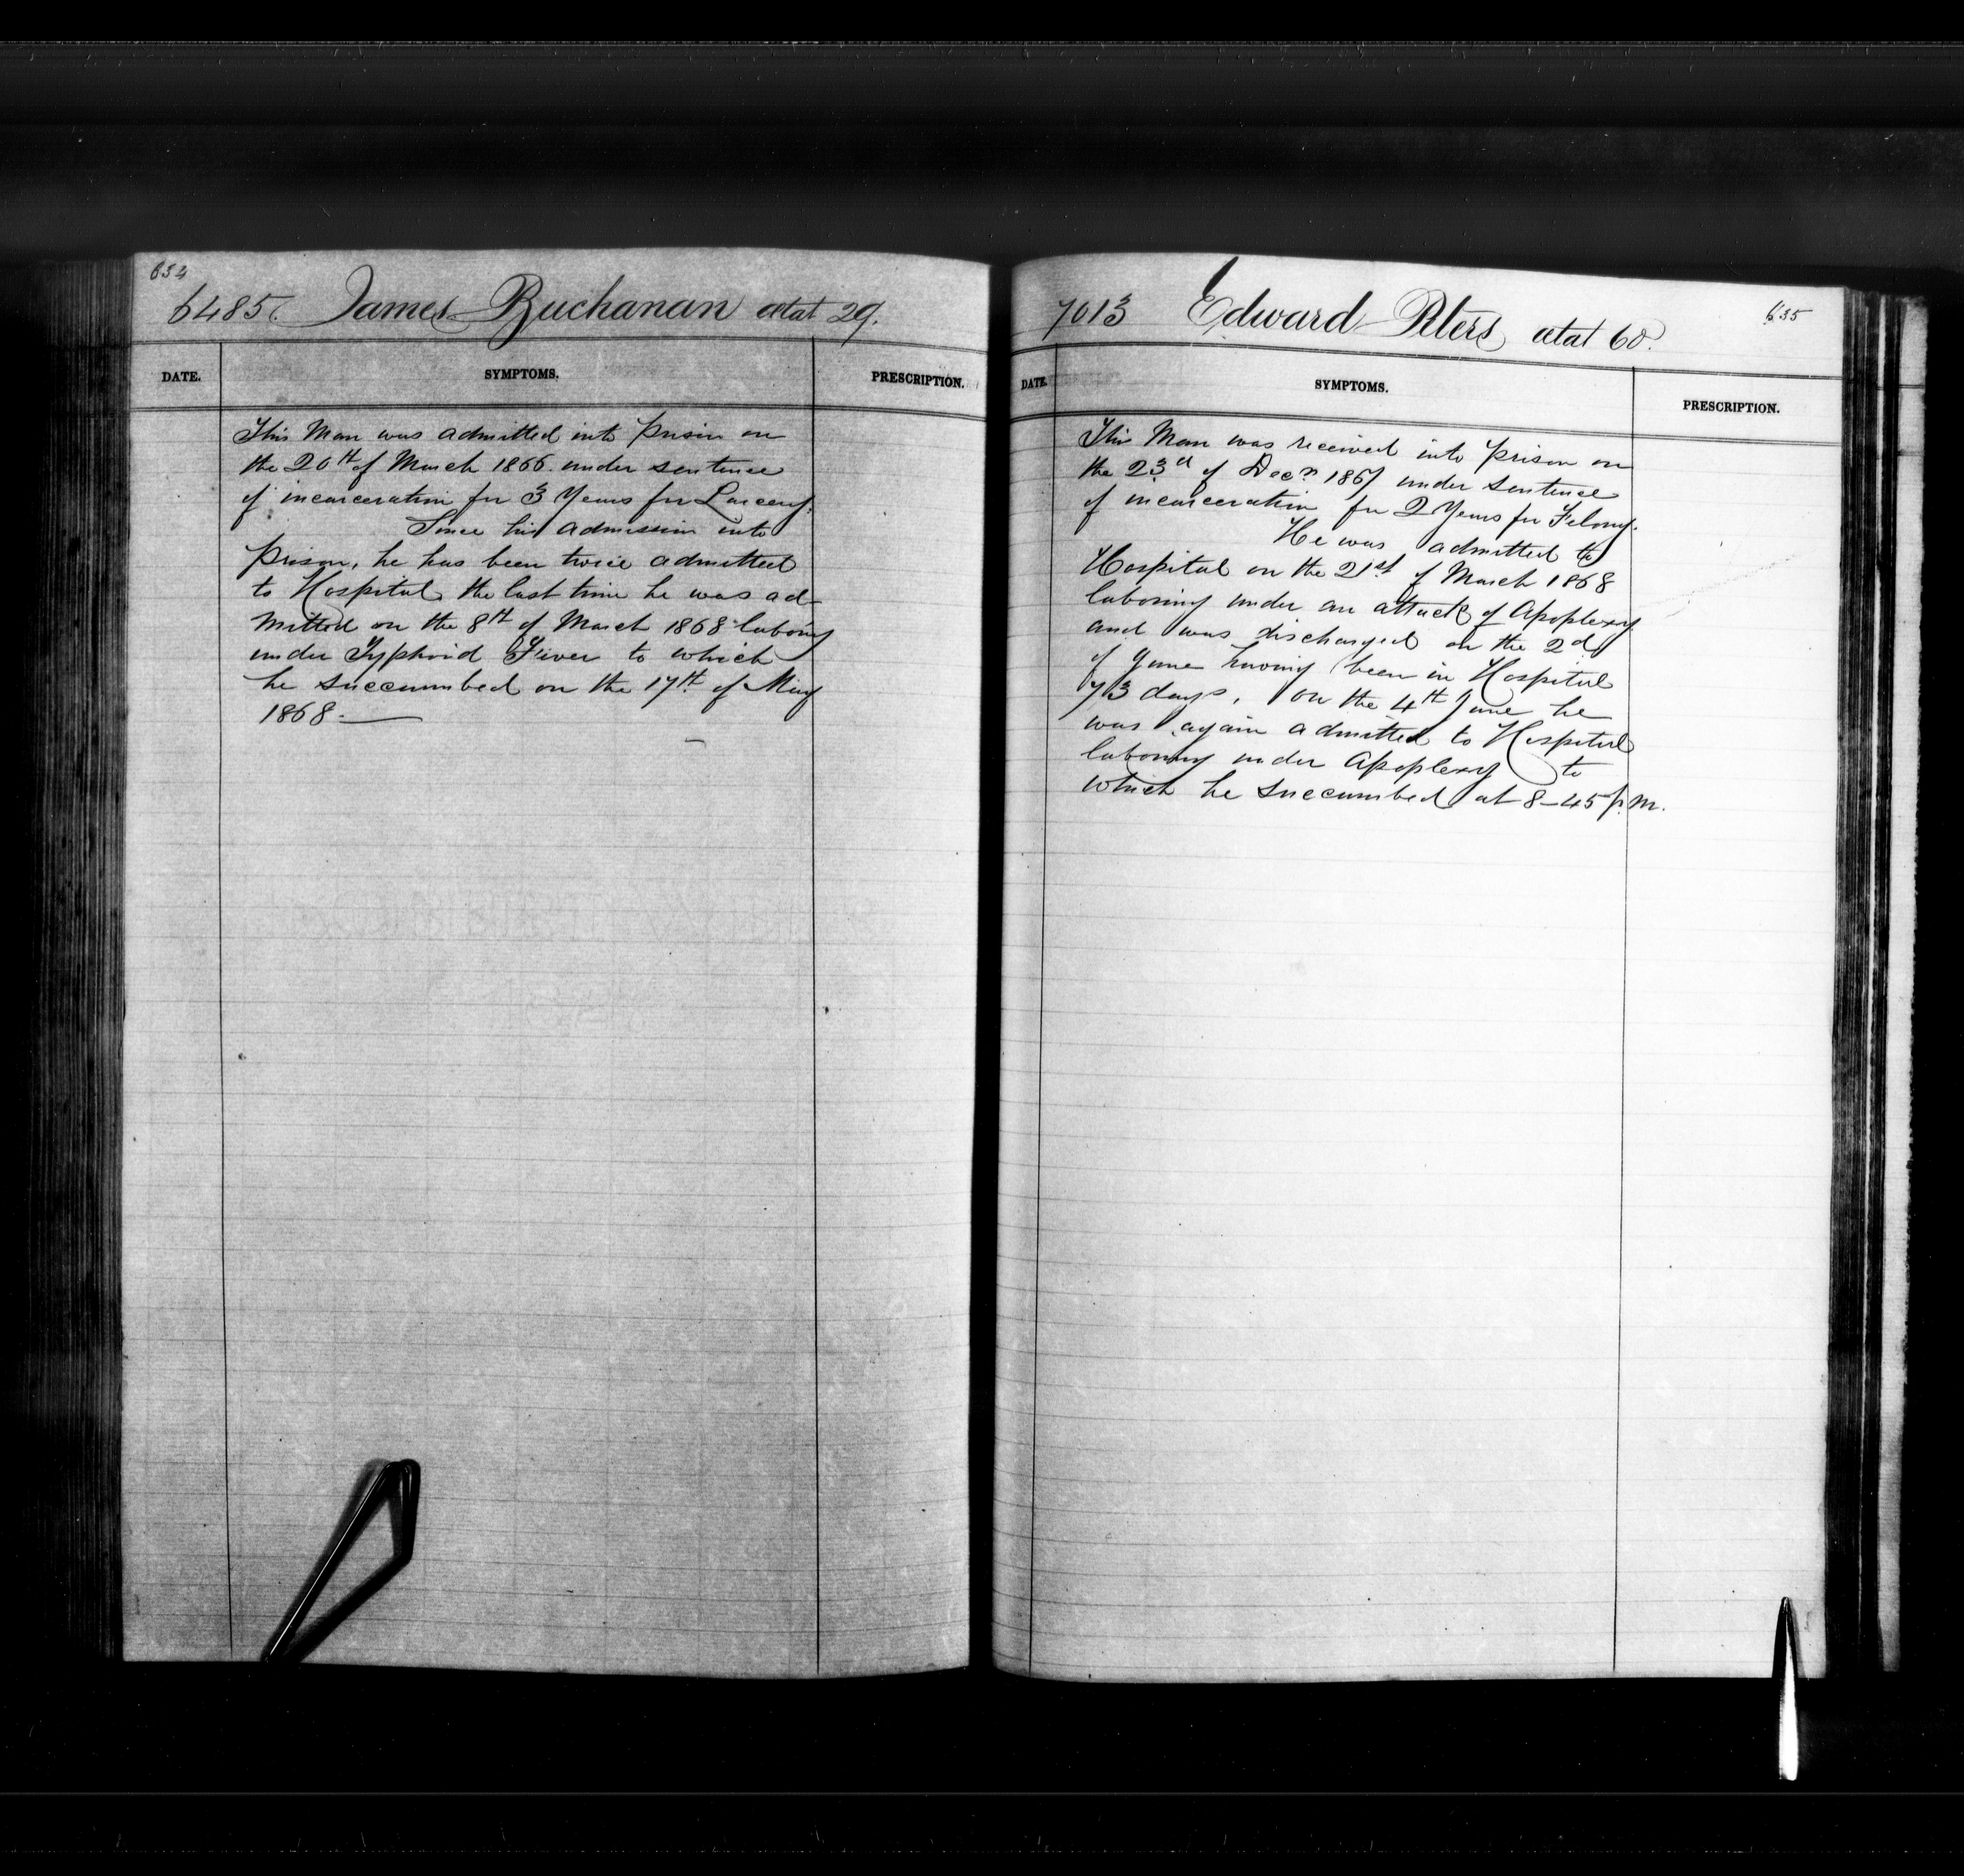 634
6485. James Buchanan ætat 29.
DATE. SYMPTOMS. PRESCRIPTION.
This Man was admitted into Prison on
the 20th of March 1866. under sentence
of incarceration for 3 Years for Larceny.
Since his admission into
Prison, he has been twice admitted
to Hospital, the last time he was ad-
mitted on the 8th of March 1868 laboring
under Typhoid Fever to which
he succumbed on the 17th of May
1868.
635
7013 Edward Peters ætat 60.
DATE. SYMPTOMS. PRESCRIPTION.
This Man was received into Prison on
the 23d of Decr 1867 under sentence
of incarceration for 2 Years for Felony.
He was admitted to
Hospital on the 21st of March 1868
laboring under an attack of Apoplexy
and was discharged on the 2d
of June having been in Hospital
73 days. On the 4th June he
was again admitted to Hospital
laboring under Apoplexy to
which he succumbed at 8-45 p.m.